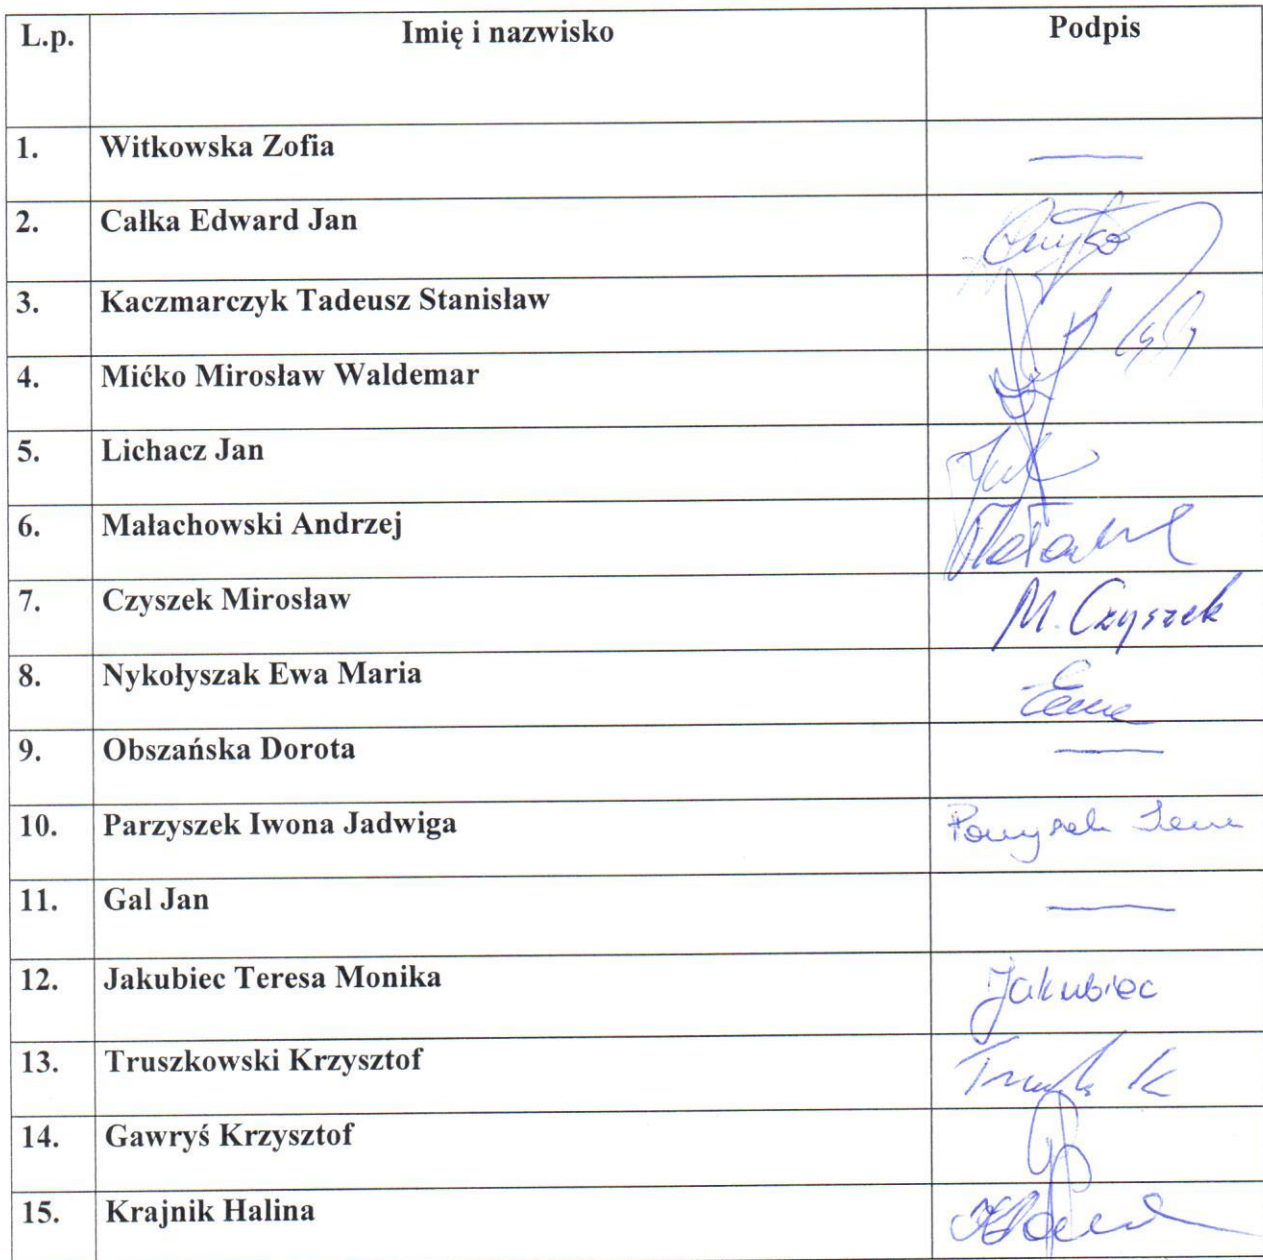 L.p. Imię i nazwisko Podpis
1. Witkowska Zofia —
2. Całka Edward Jan
3. Kaczmarczyk Tadeusz Stanisław
4. Mićko Mirosław Waldemar
5. Lichacz Jan
6. Małachowski Andrzej
7. Czyszek Mirosław M. Czyszek
8. Nykołyszak Ewa Maria
9. Obszańska Dorota —
10. Parzyszek Iwona Jadwiga
11. Gal Jan —
12. Jakubiec Teresa Monika Jakubiec
13. Truszkowski Krzysztof
14. Gawryś Krzysztof
15. Krajnik Halina